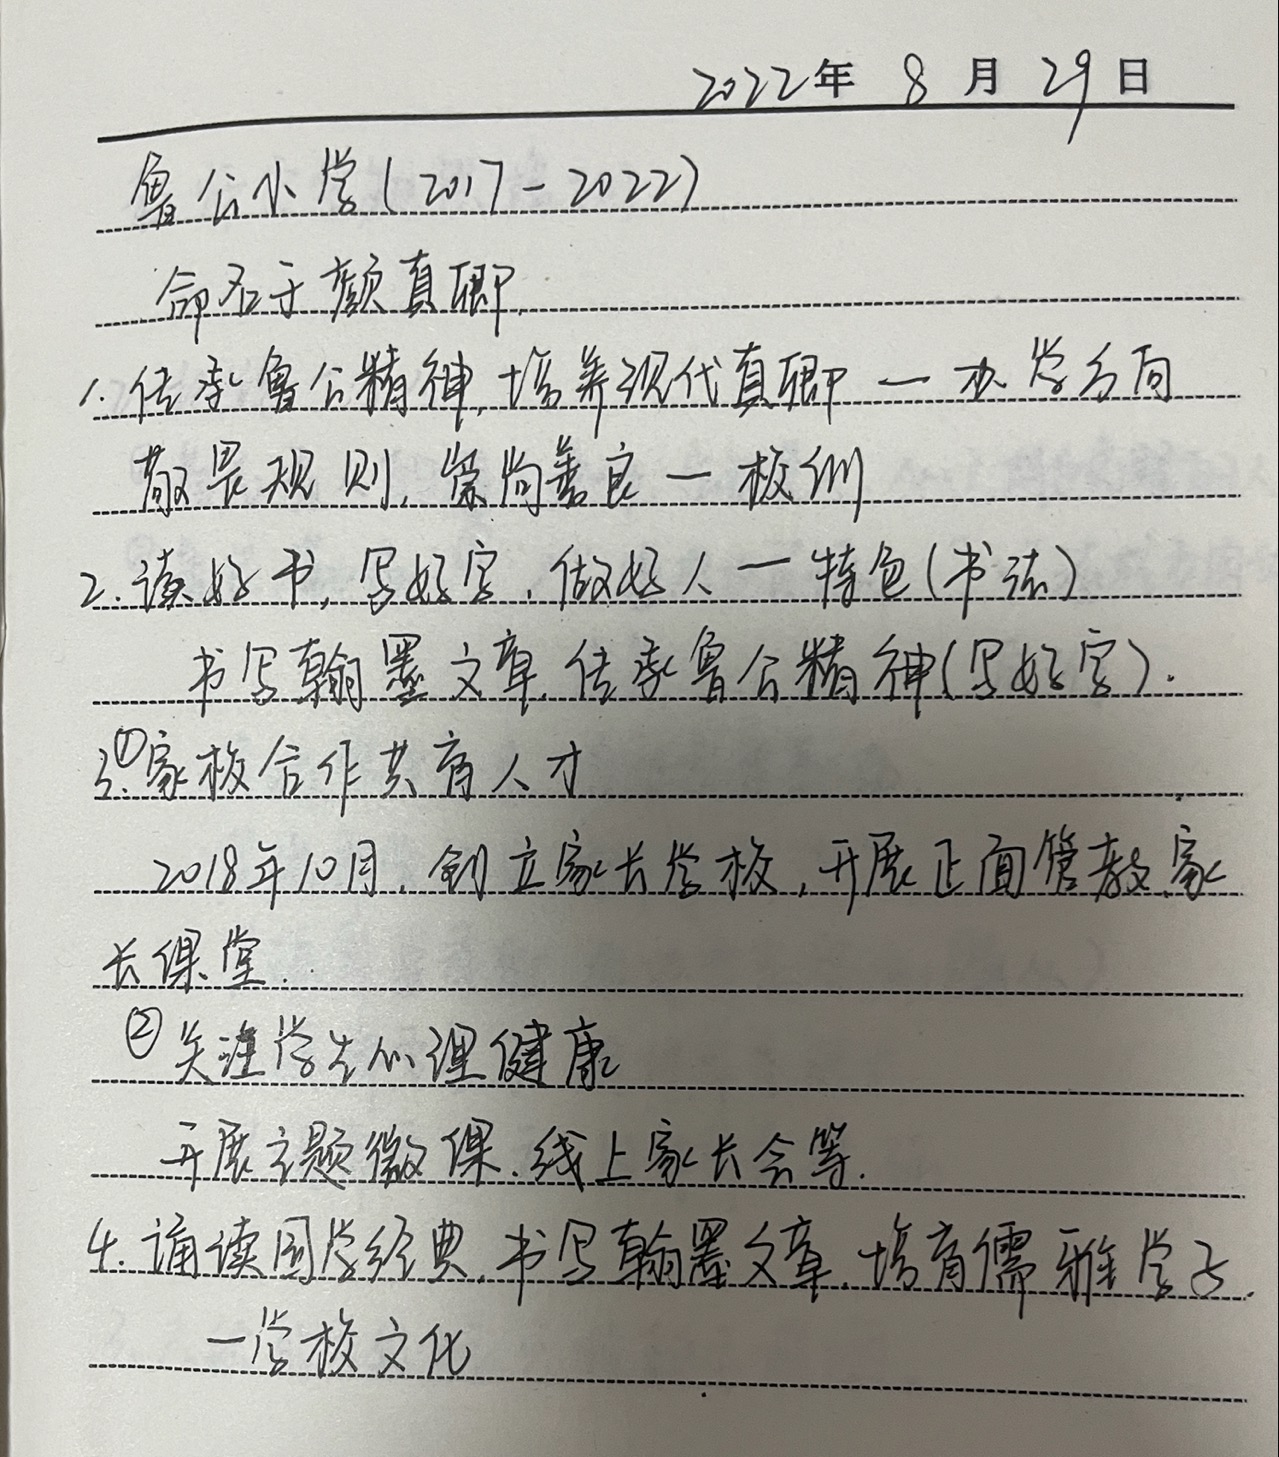 2022年 8月 29日
鲁公小学(2017-2022)
命名于颜真卿
1.传承鲁公精神,培养现代真卿一办学方向
敬畏规则,崇尚善良一校训
2.读好书,写好字,做好人一特色(书法)
书写翰墨文章,传承鲁公精神(写好字).
3.①家校合作共育人才
2018年10月,创立家长学校,开展正面管教家
长课堂.
②关注学生心理健康
开展主题微课.线上家长会等.
4.诵读国学经典,书写翰墨文章,培育儒雅学子.
一学校文化